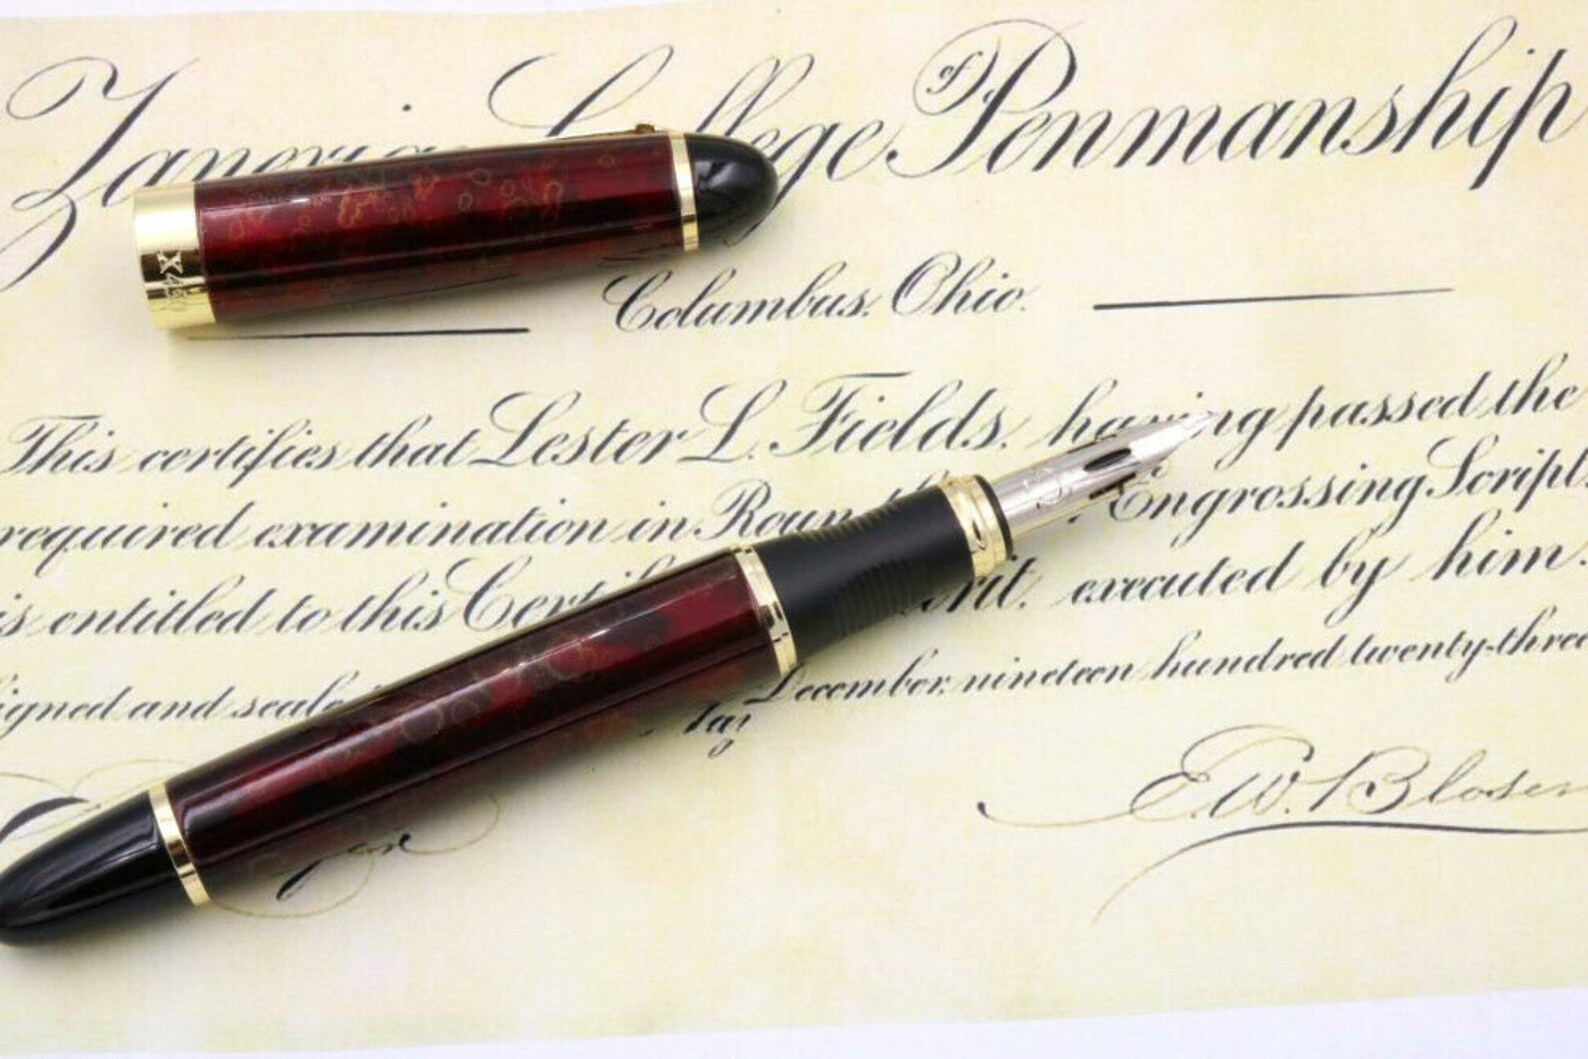 Zanerian College of Penmanship
X450
Columbus, Ohio.
This certifies that Lester L. Fields, having passed the
required examination in Engrossing Script,
is entitled to this executed by him.
December, nineteen hundred twenty-three
E.W. Bloser